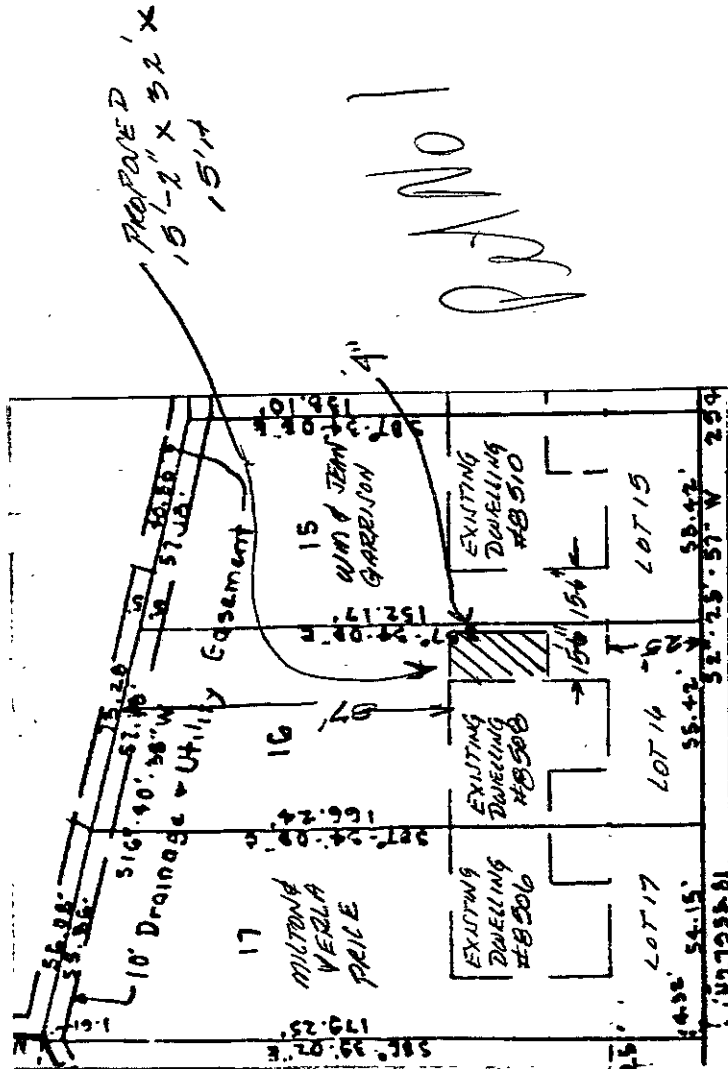 PROPOSED
15'-2" x 32' x
15'H
4"
10' Drainage & Utility Easement
S16°.40'.38"W
56.08'
55.36'
75.28
57.18'
5
5
57.18'
1.61
17
MILTON &
VERLA
PRICE
16
97'
15
WM & JEAN
GARRISON
S86°.39.02"E
179.25'
S87°.34'.08"E
166.24'
152.17'
S87°.34.08"E
138.10'
EXISTING
DWELLING
#8506
EXISTING
DWELLING
#8508
EXISTING
DWELLING
#8510
15'6"
LOT 17
LOT 16
LOT 15
25'
4.32'
54.15'
55.42'
55.42'
S2°.25'.57"W
254